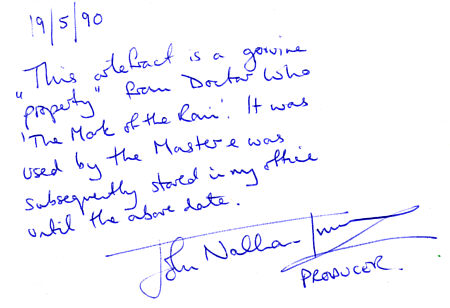 19/5/90
"This artefract is a genuine
property" from Doctor Who
'The Mark of the Rani'. It was
used by the Master & was
subsequently stored in my office
until the above date.
John Nathan-Turner
PRODUCER.